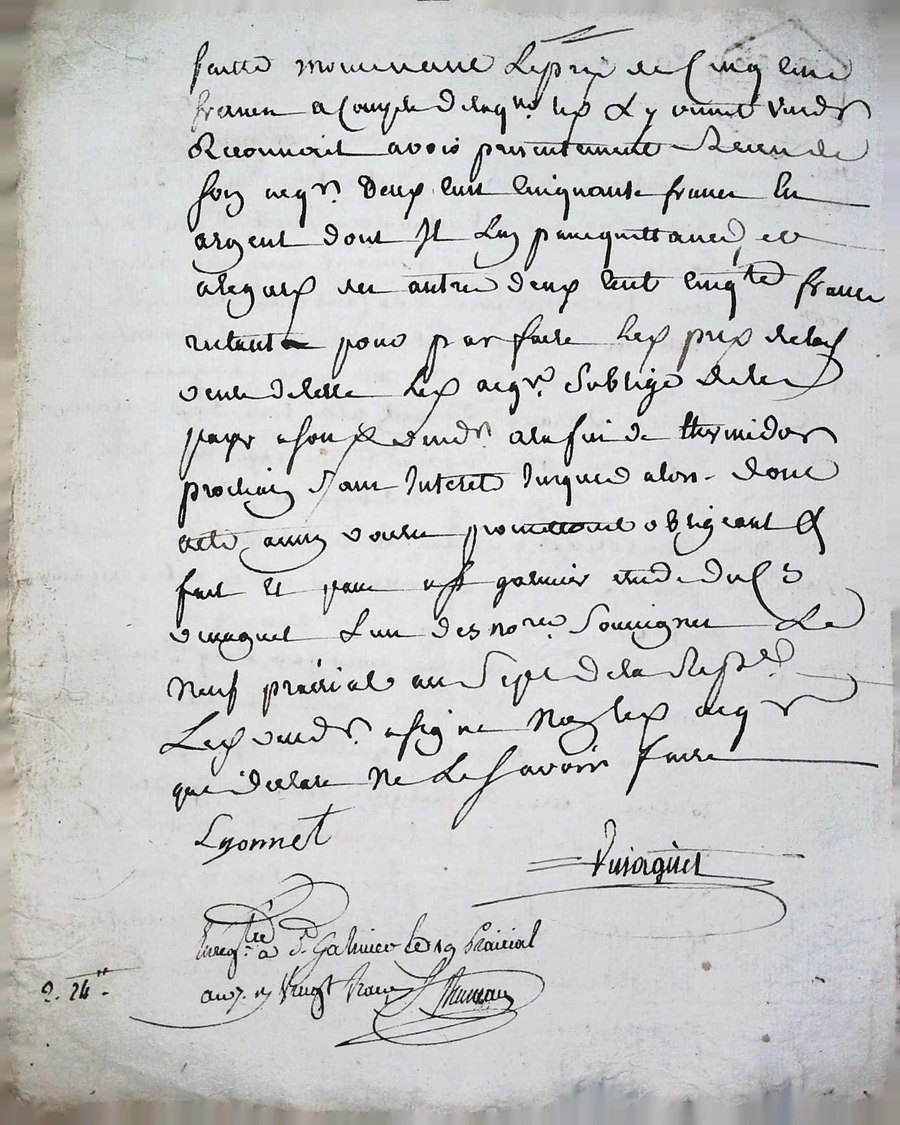 faitte moienant le prix de Cinq cent
francs a Compte duquel led. vend.r
Reconnoit avoir presentement Receu de
son acqr. deux cent cinquante francs en
argent dont Il l'en quitte, et
alegard des autres deux cent cinqte francs
restant pour parfaire led. prix de lad.
vente led. acqr. s'oblige de les
payer a son d. vendr. a la fin de thermidor
prochain sans Interet Jusques alors. dont
acte ainsi voulu promettant obligeant &
fait et passé a St galmier etude du C.
vinagnet l'un des nores. Soussignes Le
neuf prairial an Sept de la Rep.
Led. vendr. a signé Non led. acqr
qui a declaré ne le savoir faire
Lyonnet
Enregtré a St Galmier le 19 Prairial
an 7. Vingt francs
2. 24.